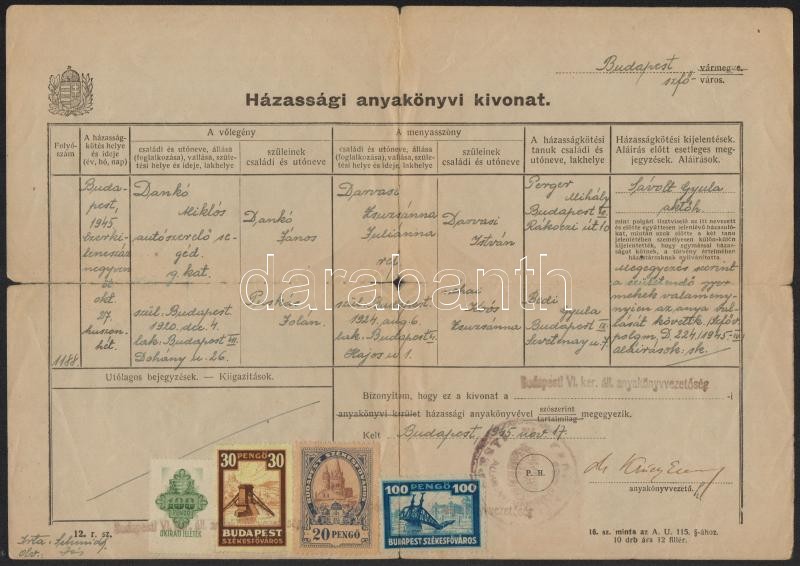 Budapest vármegye.
szfő- város.
Házassági anyakönyvi kivonat.
Folyó-
szám
A házasság-
kötés helye
és ideje
(év, hó, nap)
A vőlegény
családi és utóneve, állása
(foglalkozása), vallása, szüle-
tési helye és ideje, lakhelye
szüleinek
családi és utóneve
A menyasszony
családi és utóneve, állása
(foglalkozása), vallása, szüle-
tési helye és ideje, lakhelye
szüleinek
családi és utóneve
A házasságkötési
tanuk családi és
utóneve, lakhelye
Házasságkötési kijelentések.
Aláírás előtt esetleges meg-
jegyzések. Aláírások.
1188.
Buda-
pest,
1945
ezerki-
lencszáz
negyven
öt
okt.
27.
huszon-
hét.
Dankó
Miklós
autószerelő se-
géd.
g. kat.
szül. Budapest
1920. dec. 4.
lak. Budapest VII.
Dohány u. 26.
Dankó
János
Jolán.
Darvasi
Zsuzsánna
Juliánna
szül. Budapest
1924. aug. 6
lak. Budapest
Hajos u 1.
Darvasi
István
Zsuzsánna
Perger
Mihály
Budapest
Rákóczi út 10
Bedi
Gyula
Budapest IX.
Sávolt Gyula
aktóh
mint polgári tisztviselő az itt nevezett
és előtte együttesen jelenlévő házasulók-
kat, miután azok előtte a két tanu
jelenlétében személyesen külön-külön
kijelentették, hogy egymással házassá-
got kötnek, a törvény értelmében
házastársaknak nyilvánította.
Megegyezés szerint
a születendő gyer-
mekek valameny-
nyien az anya val-
lását követik. Szfőv.
polgm. D. 224/1945-IV
aláírások: sk.
darabanth
Utólagos bejegyzések. — Kiigazítások.
Budapesti VI. ker. áll. anyakönyvvezetőség
Bizonyítom, hogy ez a kivonat a -i
anyakönyvi kerület házassági anyakönyvével szószerint
tartalmilag megegyezik.
Kelt Budapest, 1945. nov. 17.
P. H.
anyakönyvvezető.
100
PENGŐ
OKIRATI ILLETÉK
30 PENGŐ 30
BUDAPEST
SZÉKESFŐVÁROS
BUDAPEST SZÉKESFŐVÁROS
20 PENGŐ
100 PENGŐ 100
BUDAPEST SZÉKESFŐVÁROS
12. r. sz.
Írta: Schmidt
Olv.
16. sz. minta az A. U. 115. §-ához.
10 drb ára 12 fillér.